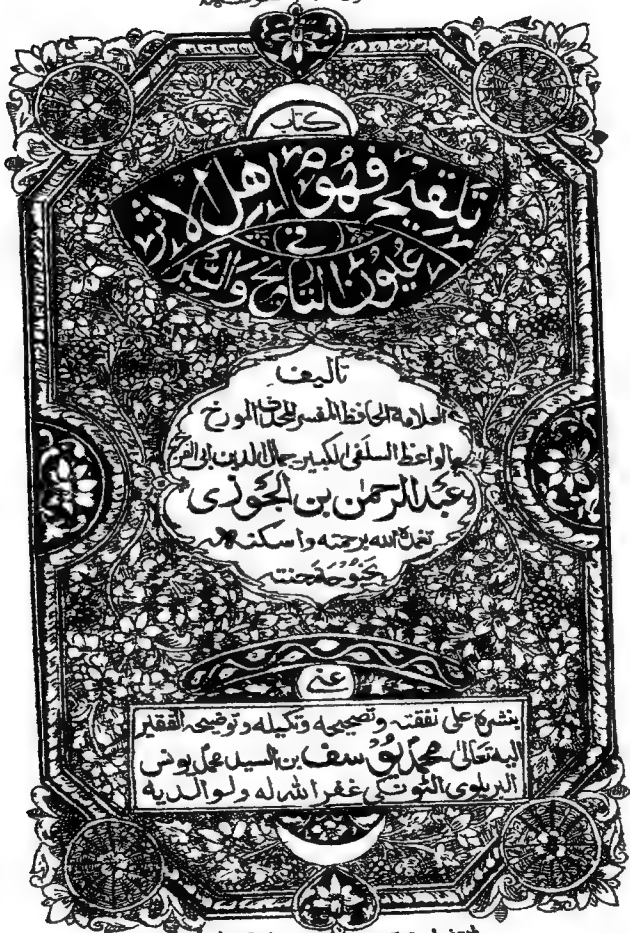 كتاب
تلقيح فهوم اهل الاثر
في
عيون التاريخ والسير
تاليف
العلامة الحافظ المفسر المحدث المورخ
الواعظ السلفى الكبير جمال الدين ابى الفرج
عبد الرحمن بن الجوزى
تغمده الله برحمته واسكنه
بحبوحة جنته
عنى
بنشره على نفقته وتصحيحه وتكميله وتوضيحه الفقير
اليه تعالىٰ محمد يوسف بن السيد محمد يونس
البريلوى الثونكى غفر الله له ولوالديه